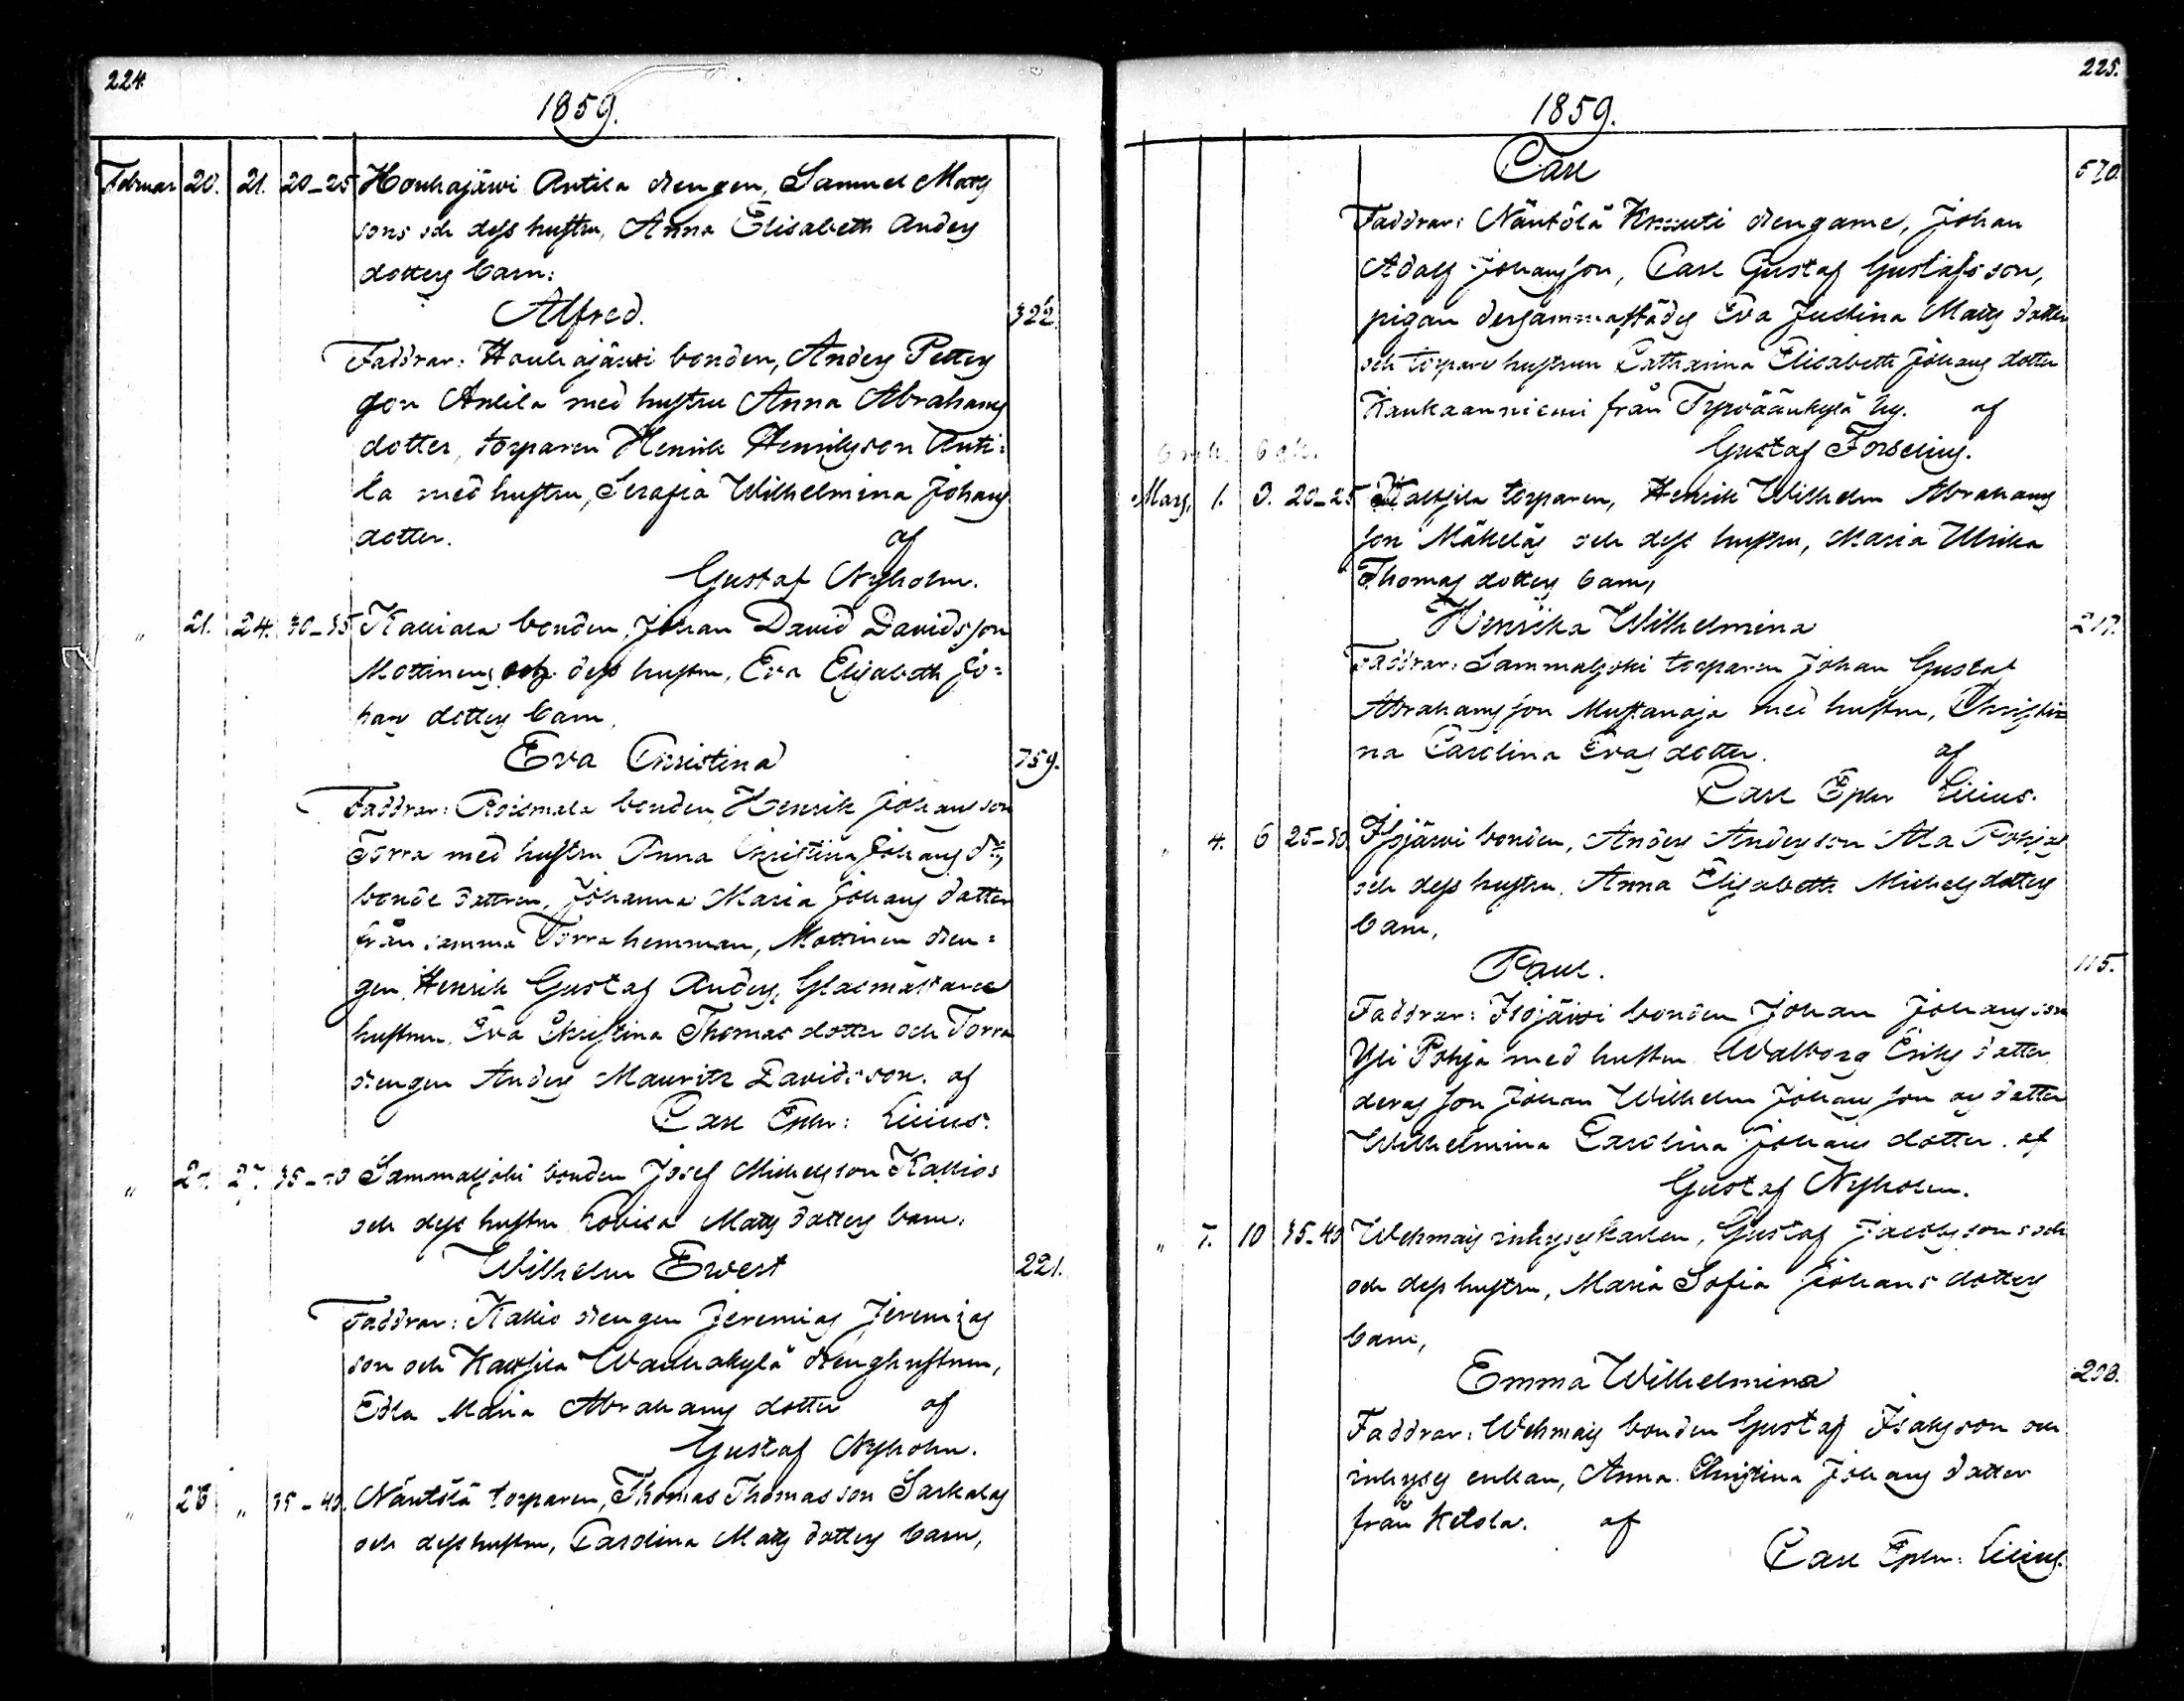 224.
1859.
Februar 20. 21. 20-25 Houhajärwi Antila drengen, Samuel Matts
sons och dess hustru, Anna Elisabeth Anders
dotters barn:
Alfred. 322
Faddrar: Houhajärwi bonden, Anders Petters
son Antila med hustru Anna Abrahams
dotter, torparen Henrik Henriksson Anti=
la med hustru, Serafia Wilhelmina Johans
dotter. af
Gustaf Nyholm.
" 21. 24. 30-35 Kalliala bonden, Johan David Davidsson
Mottinens och dess hustru, Eva Elisabeth Jo=
hans dotters barn,
Eva Christina 759.
Faddrar: Roismala bonden Henrik Johansson
Torra med hustru Anna Christina Johans dr,
bonde dottren, Johanna Maria Johans dotter
från samma Torra hemman, Mottinen dren=
gen, Henrik Gustaf Anders, Glasmästare
hustrun, Eva Christina Thomas dotter och Torra
drengen Anders Mauritz Davidsson. af
Carl Ephr: Lilius.
" 27. 35-40 Sammaljoki bonden Josef Michelsson Kallios
och dess hustru Lovisa Matts dotters barn,
Wilhelm Ewert 221.
Faddrar: Kallio drengen Jeremias Jeremias
son och Wanhakylä drenghustrun,
Edla Maria Abrahams dotter af
Gustaf Nyholm.
" 28 " 35-40. Näntölä torparen, Thomas Thomasson Sarkalas
och dess hustru, Carolina Matts dotters barn,
225.
1859.
Carl 570.
Faddrar: Näntölä Knuuti drengarne, Johan
Adolf Johansson, Carl Gustaf Gustafsson,
pigan dersammastädes Eva Justina Matts dotter
och torpare hustrun Catharina Elisabeth Johans dotter
Kaukaanniemi från Tyrväänkylä by. af
Gustaf Forselius.
Mars, 1. 3. 20-25 torparen, Henrik Wilhelm Abrahams
son Mäkeläs och dess hustru, Maria Ulrika
Thomas dotters barn,
Henrika Wilhelmina 217.
Faddrar: Sammaljoki torparen Johan Gustaf
Abrahamsson Mustanoja med hustru, Christi=
na Carolina Evas dotter. af
Carl Ephr Lilius.
" 4. 6 25-30. Isojärwi bonden, Anders Andersson Ala Pohjas
och dess hustru, Anna Elisabeth Michels dotters
barn,
Paul. 115.
Faddrar: Isojärwi bonden Johan Johansson
Yli Pohja med hustru Walborg Eriks dotter,
deras son Johan Wilhelm Johansson og dotter
Wilhelmina Carolina Johans dotter. af
Gustaf Nyholm.
" 7. 10 35-40 Wehmais inhyseskarlen, Gustaf Jacobssons och
och dess hustru, Maria Sofia Johans dotters
barn,
Emma Wilhelmina 208.
Faddrar: Wehmais bonden Gustaf Isaksson och
inhyses enkan, Anna Christina Johans dotter
från Ketola. af
Carl Ephr: Lilius.